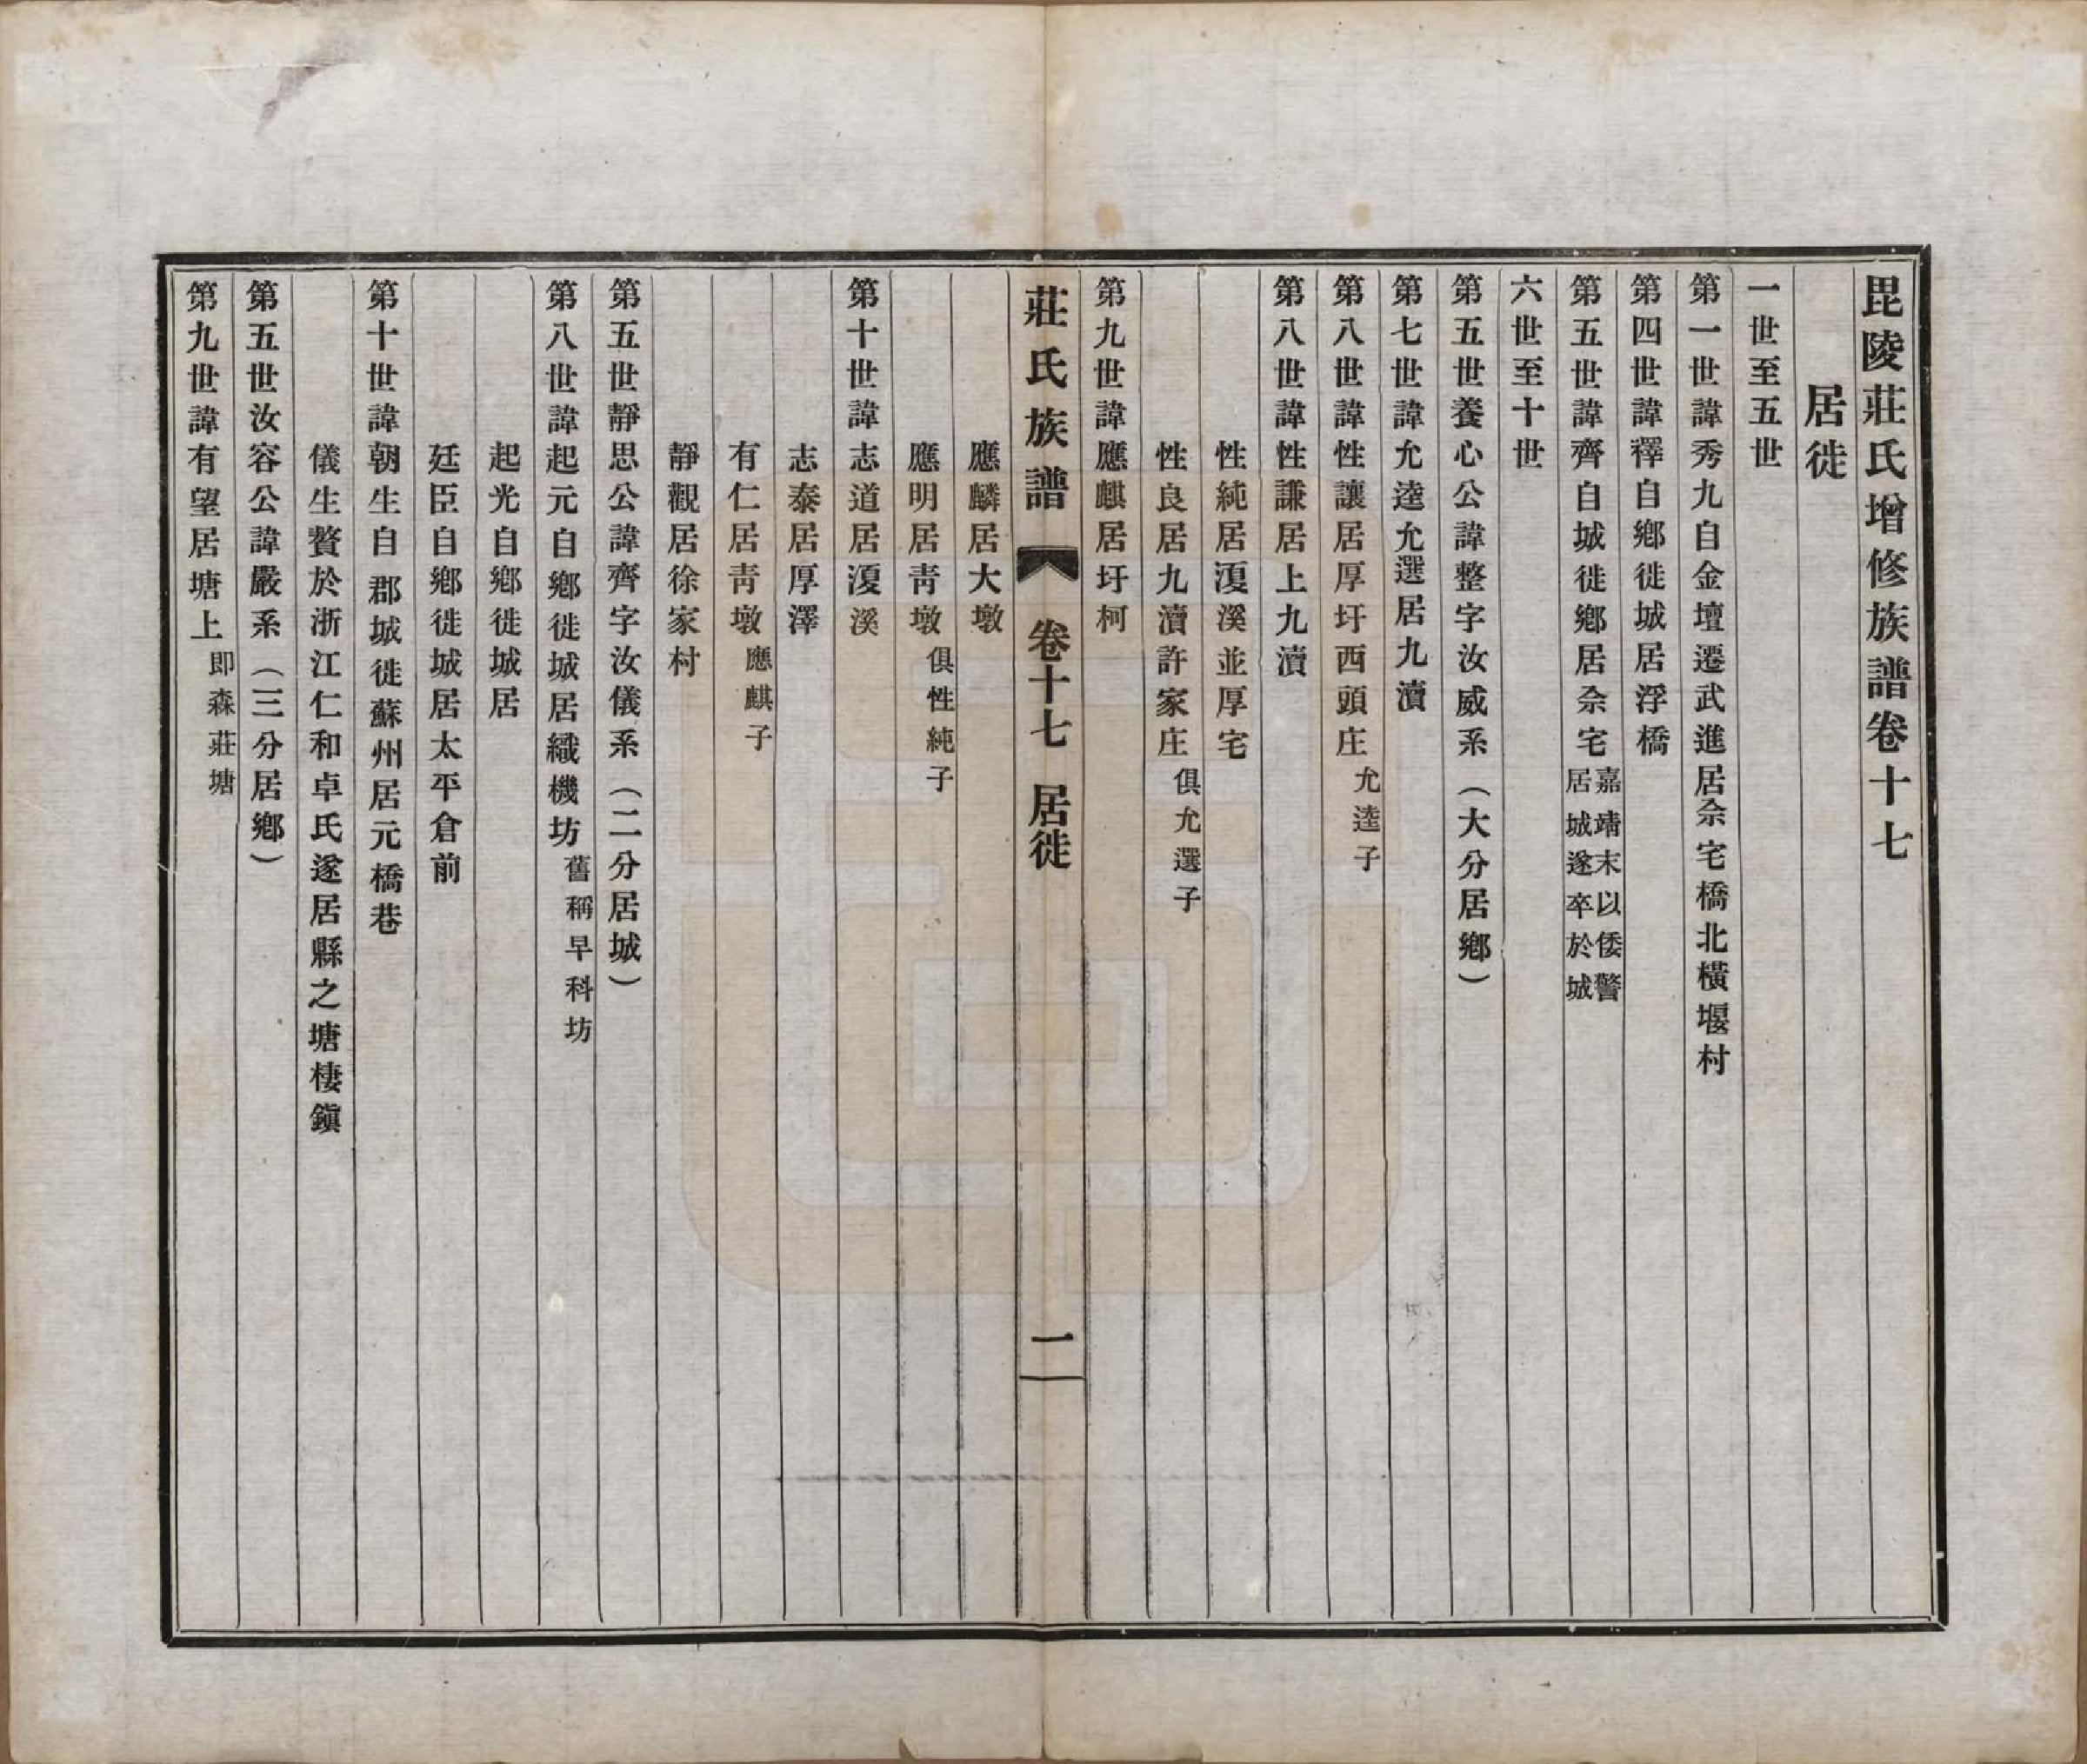 毘陵莊氏增修族譜卷十七
居徙
一世至五世
第一世諱秀九自金壇遷武進居佘宅橋北橫堰村
第四世諱釋自鄉徙城居浮橋
第五世諱齊自城徙鄉居佘宅嘉靖末以倭警居城遂卒於城
六世至十世
第五世養心公諱整字汝威系（大分居鄉）
第七世諱允逵允選居九瀆
第八世諱性讓居厚圩西頭庄允逵子
第八世諱性謙居上九瀆
性純居湲溪並厚宅
性良居九瀆許家庄俱允選子
第九世諱應麒居圩柯
莊氏族譜 卷十七 居徙 一
應麟居大墩
應明居靑墩俱性純子
第十世諱志道居湲溪
志泰居厚澤
有仁居靑墩應麒子
靜觀居徐家村
第五世靜思公諱齊字汝儀系（二分居城）
第八世諱起元自鄉徙城居織機坊舊稱早科坊
起光自鄉徙城居
廷臣自鄉徙城居太平倉前
第十世諱朝生自郡城徙蘇州居元橋巷
儀生贅於浙江仁和卓氏遂居縣之塘棲鎭
第五世汝容公諱嚴系（三分居鄉）
第九世諱有望居塘上即森莊塘